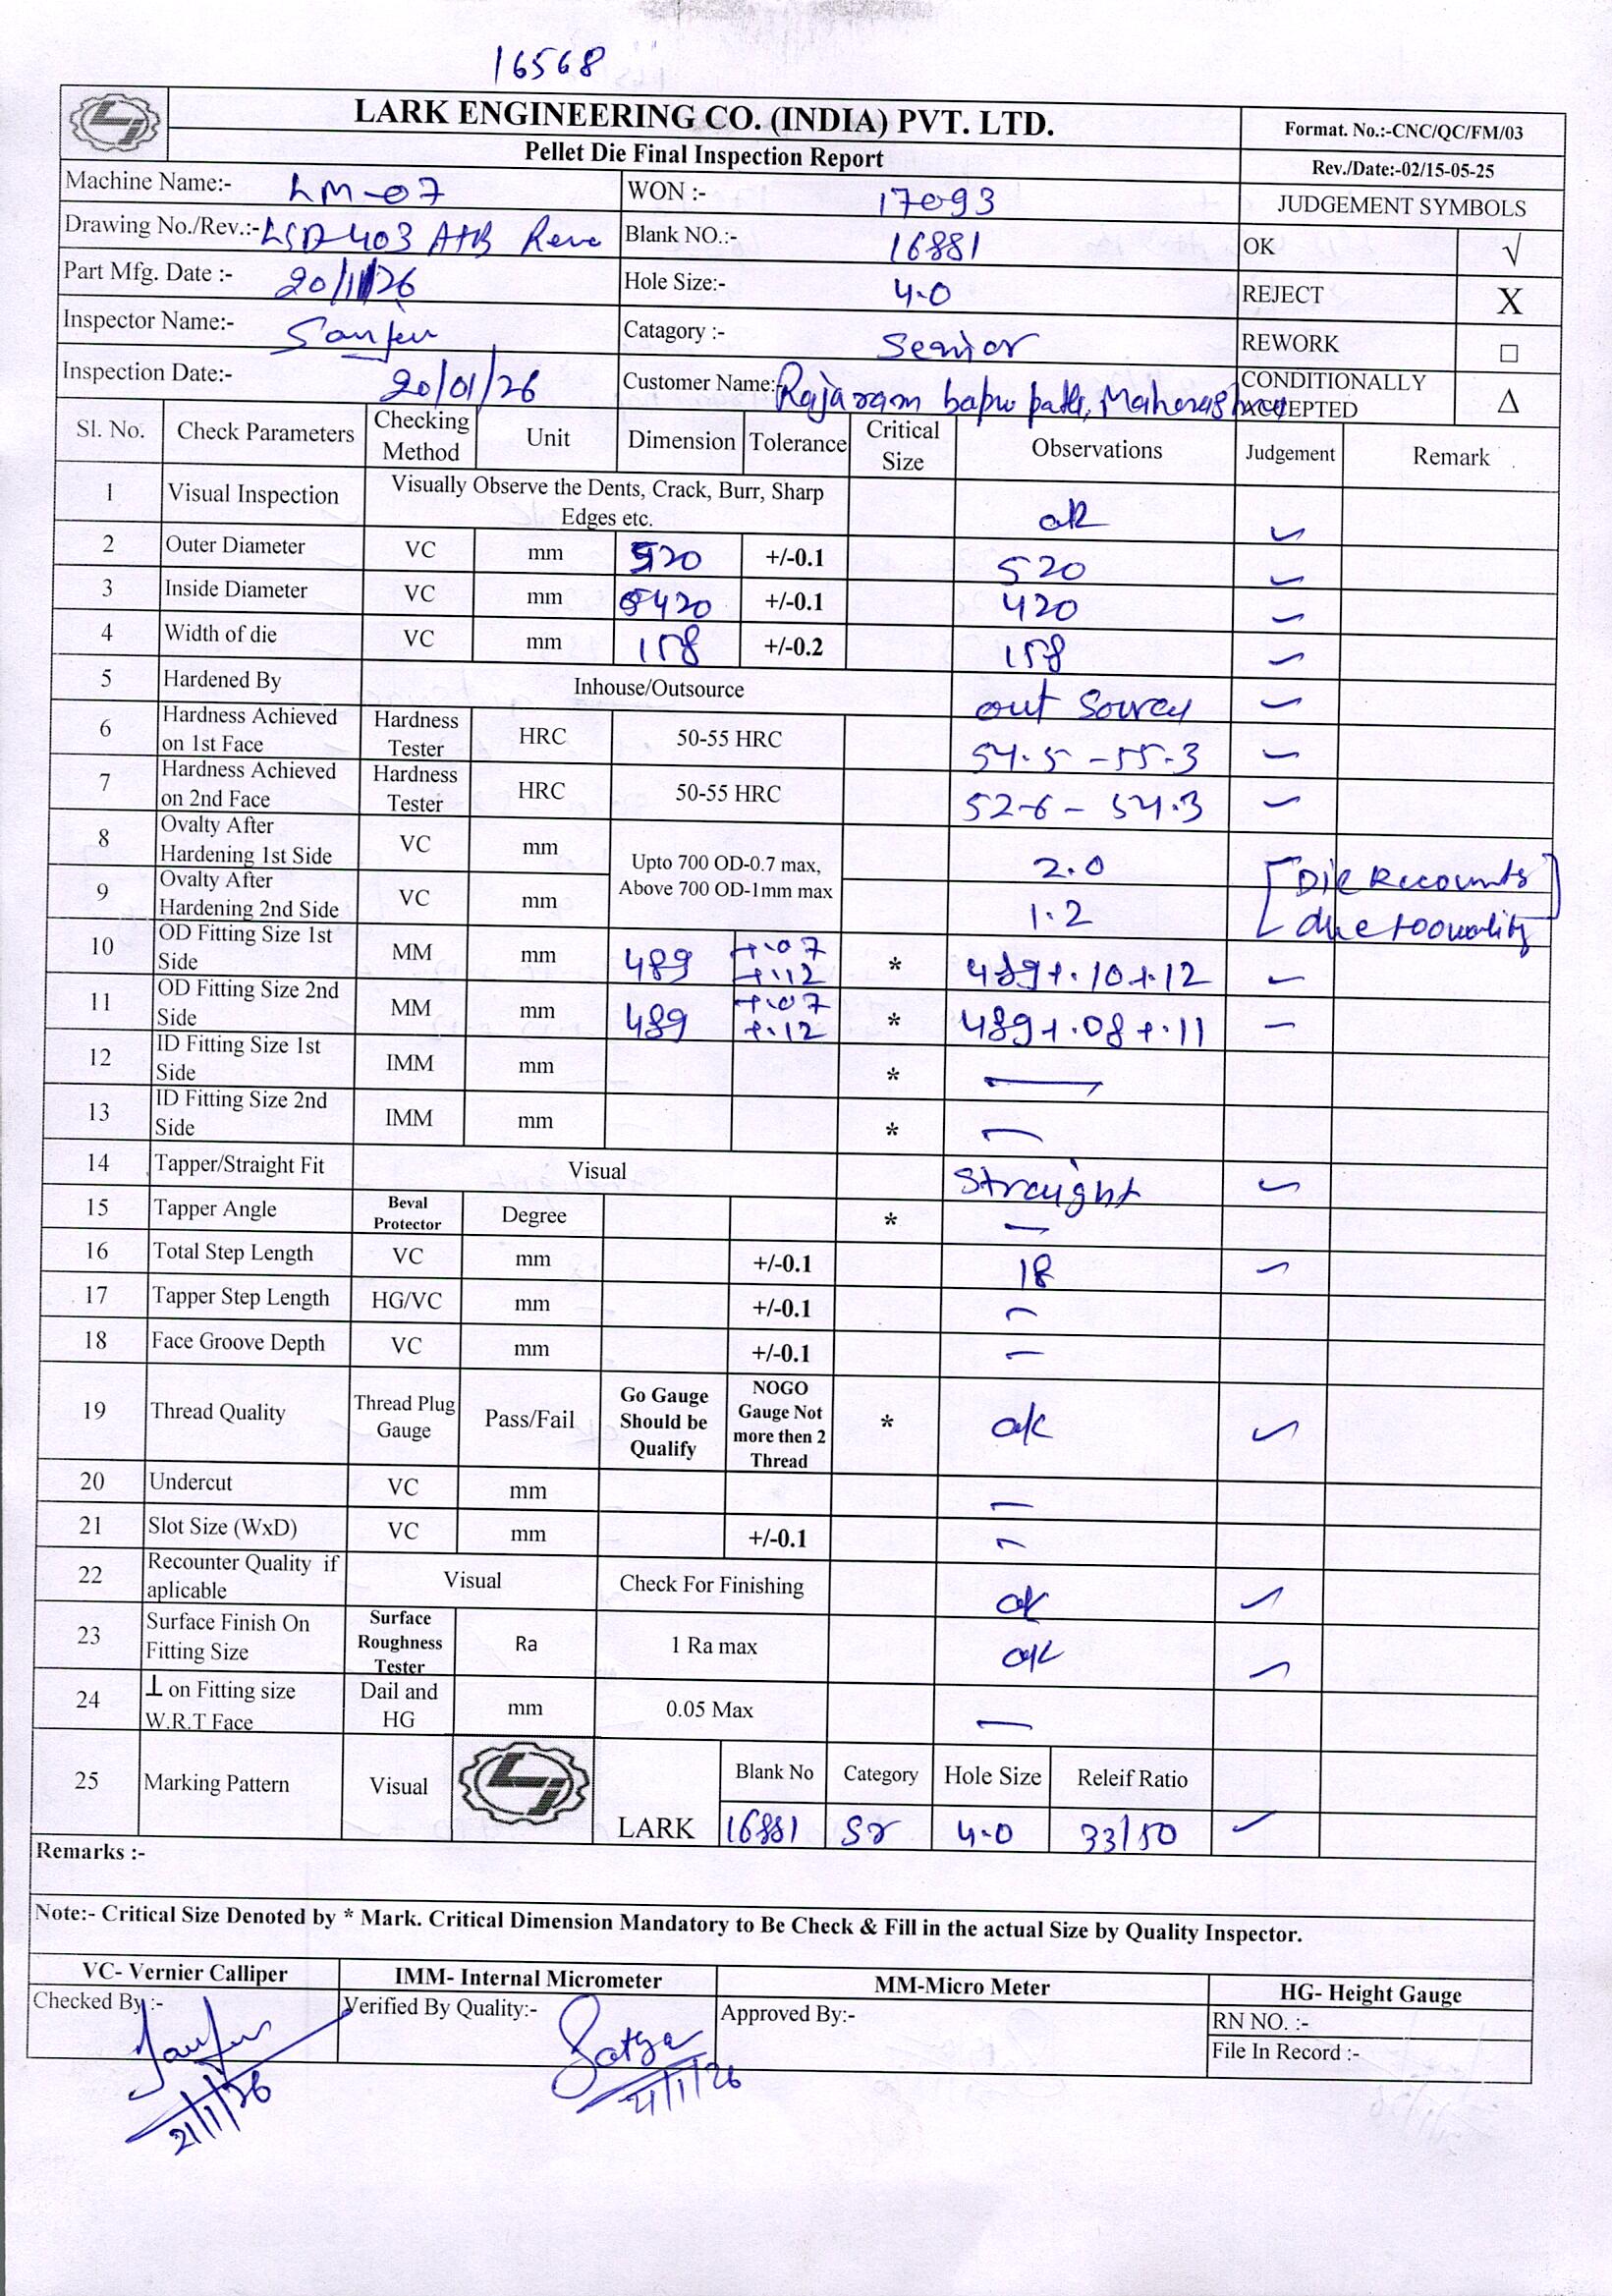 16568
LARK ENGINEERING CO. (INDIA) PVT. LTD.
Format. No.:-CNC/QC/FM/03
Pellet Die Final Inspection Report
Rev./Date:-02/15-05-25
Machine Name:- LM-07 WON :- 17093 JUDGEMENT SYMBOLS
Drawing No./Rev.:- LSD 403 A+B Blank NO.:- 16881 OK √
Part Mfg. Date :- 20/1/26 Hole Size:- 4.0 REJECT X
Inspector Name:- Catagory :- Senior REWORK □
Inspection Date:- 20/01/26 Customer Name:- Rajaram bapu CONDITIONALLY ACCEPTED Δ
Sl. No. Check Parameters Checking Method Unit Dimension Tolerance Critical Size Observations Judgement Remark
1 Visual Inspection Visually Observe the Dents, Crack, Burr, Sharp Edges etc. ok ✓
2 Outer Diameter VC mm 520 +/-0.1 520 ✓
3 Inside Diameter VC mm 420 +/-0.1 420 ✓
4 Width of die VC mm 158 +/-0.2 158 ✓
5 Hardened By Inhouse/Outsource out ✓
6 Hardness Achieved on 1st Face Hardness Tester HRC 50-55 HRC 54.5 - 55.3 ✓
7 Hardness Achieved on 2nd Face Hardness Tester HRC 50-55 HRC 52.6 - 54.3 ✓
8 Ovalty After Hardening 1st Side VC mm Upto 700 OD-0.7 max, Above 700 OD-1mm max 2.0 [Die
9 Ovalty After Hardening 2nd Side VC mm 1.2 due to
10 OD Fitting Size 1st Side MM mm 489 +.07 +.12 * 489+.10+.12 ✓
11 OD Fitting Size 2nd Side MM mm 489 +.07 +.12 * 489+.08+.11 ✓
12 ID Fitting Size 1st Side IMM mm * —
13 ID Fitting Size 2nd Side IMM mm * —
14 Tapper/Straight Fit Visual Straight ✓
15 Tapper Angle Beval Protector Degree * —
16 Total Step Length VC mm +/-0.1 18 ✓
17 Tapper Step Length HG/VC mm +/-0.1 —
18 Face Groove Depth VC mm +/-0.1 —
19 Thread Quality Thread Plug Gauge Pass/Fail Go Gauge Should be Qualify NOGO Gauge Not more then 2 Thread * ok ✓
20 Undercut VC mm —
21 Slot Size (WxD) VC mm +/-0.1 —
22 Recounter Quality if aplicable Visual Check For Finishing ok ✓
23 Surface Finish On Fitting Size Surface Roughness Tester Ra 1 Ra max ok ✓
24 ⊥ on Fitting size W.R.T Face Dail and HG mm 0.05 Max —
25 Marking Pattern Visual LARK Blank No Category Hole Size Releif Ratio
16881 Sr 4.0 33/50 ✓
Remarks :-
Note:- Critical Size Denoted by * Mark. Critical Dimension Mandatory to Be Check & Fill in the actual Size by Quality Inspector.
VC- Vernier Calliper IMM- Internal Micrometer MM-Micro Meter HG- Height Gauge
Checked By :- Verified By Quality:- Satya Approved By:- RN NO. :-
File In Record :-
21/1/26 21/1/26